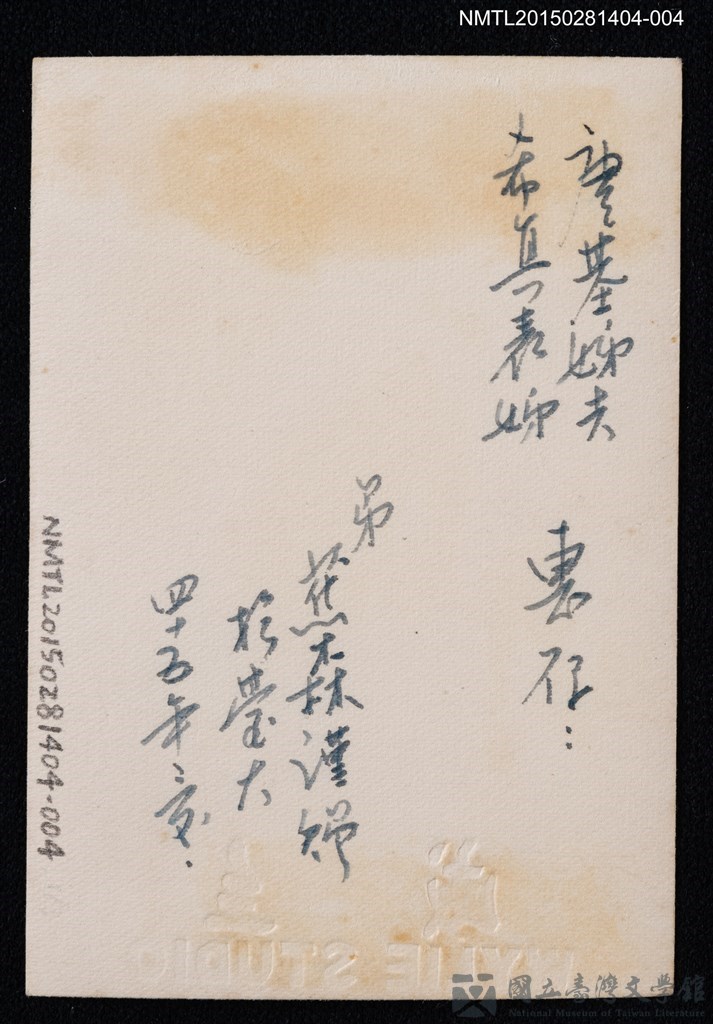 NMTL20150281404-004
基姊夫
希真表姊
惠存:
弟
蕉森謹贈
於臺大
四十五年、夏.
NMTL20150281404-004
STUDIO
國立臺灣文學館
National Museum of Taiwan Literature